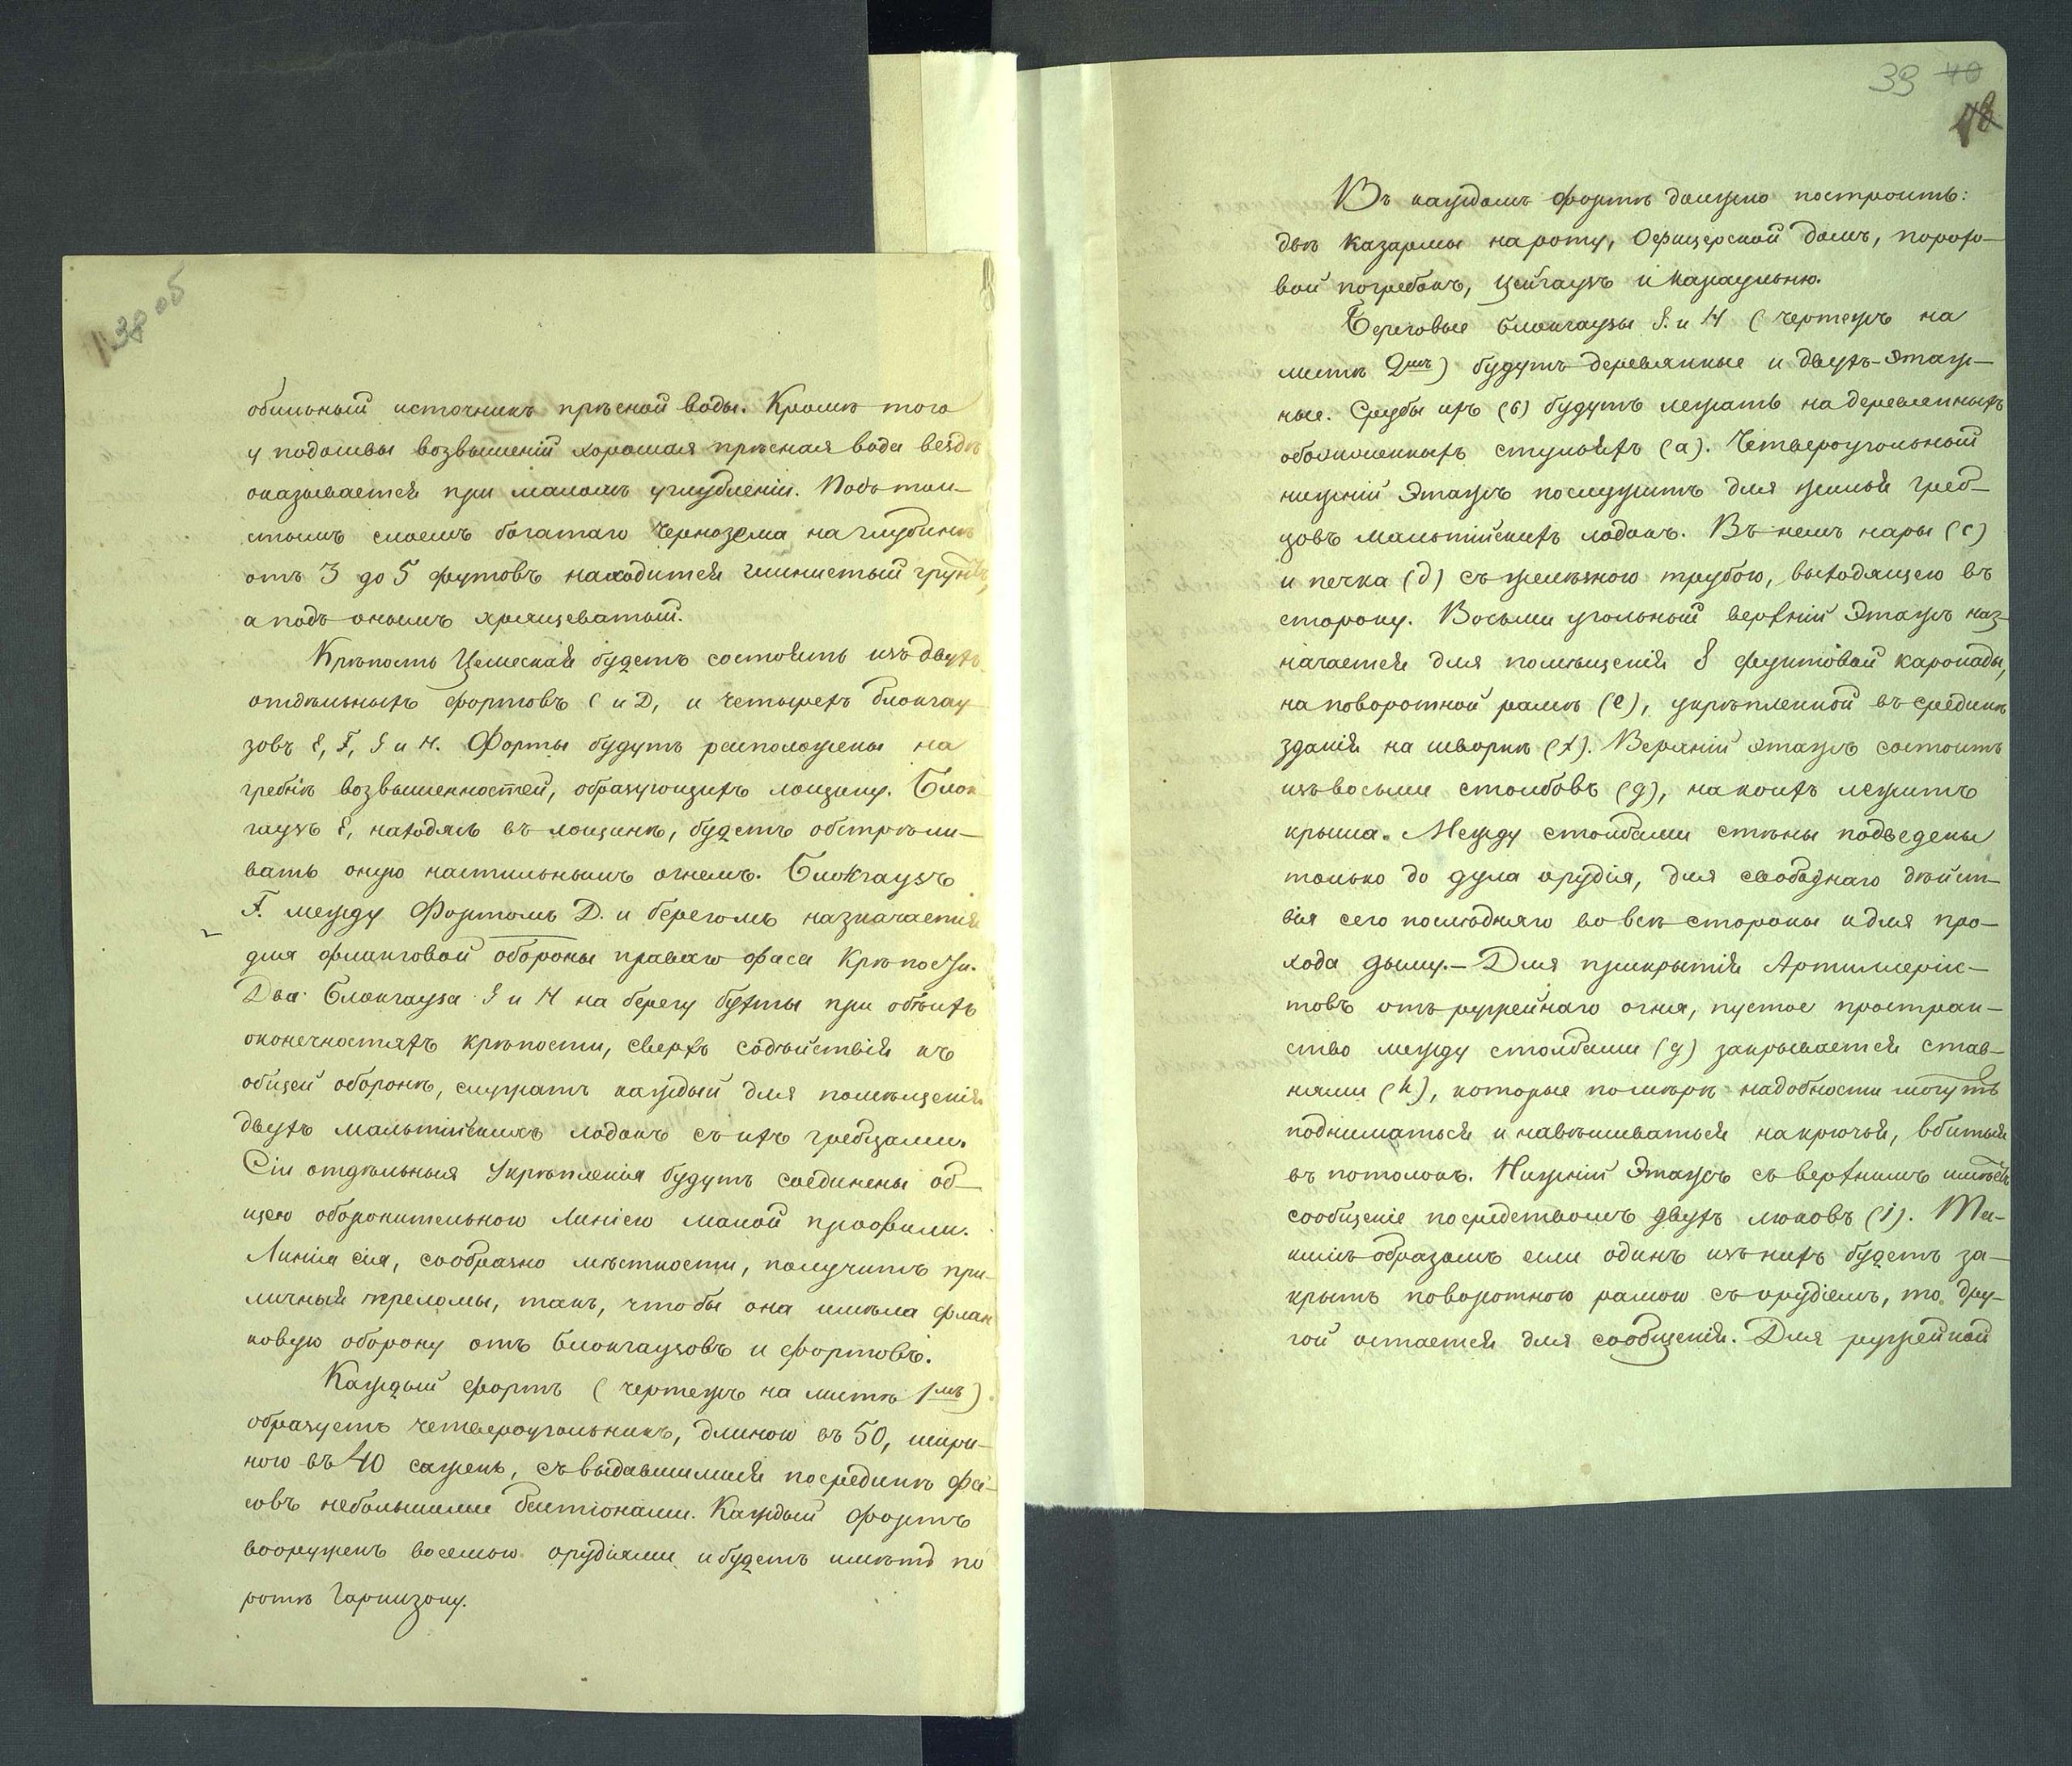 38 об
обильный источникъ прѣсной воды. Кромѣ того
у подошвы возвышеній хорошая прѣсная вода вездѣ
оказывается при маломъ углубленіи. Подъ тол-
стымъ слоемъ богатаго чернозема на глубинѣ
отъ 3 до 5 футовъ находится глинистый грунтъ,
а подъ онымъ хрящеватый.
Крѣпость Цемеская будетъ состоять изъ двухъ
отдѣльныхъ фортовъ C и D, и четырехъ блокгау
зовъ E, F, G и H. Форты будутъ расположены на
гребнѣ возвышенностей, образующихъ лощину. Блок
гаузъ E, находясь въ лощинѣ, будетъ обстрѣли-
вать оную настильнымъ огнемъ. Блокгаузъ
F. между Фортомъ D. и берегомъ назначается
для фланговой обороны праваго фаса Крѣпости.
Два Блокгауза G и H на берегу бухты при обѣихъ
оконечностяхъ крѣпости, сверхъ содѣйствія къ
общей оборонѣ, служатъ каждый для помѣщенія
двухъ мальтійскихъ лодокъ съ ихъ гребцами.
Сіи отдѣльныя Укрѣпленія будутъ соединены об-
щею оборонительною Линіею малой профили.
Линія сія, сообразно мѣстности, получитъ при-
личныя переломы, такъ, чтобы она имѣла флан
ковую оборону отъ блокгаузовъ и фортовъ.
Каждый фортъ (чертежъ на листѣ 1мъ)
образуетъ четвероугольникъ, длиною въ 50, шири-
ною въ 40 сажень, съ выдавшимися посрединѣ фа-
совъ небольшими бастіонами. Каждый фортъ
вооруженъ восемью орудіями и будетъ имѣть по
ротѣ Гарнизону.
39 40
Въ каждомъ фортѣ должно построить:
двѣ казармы на роту, Офицерской домъ, порохо-
вой погребокъ, Цейгаузъ и караульню.
Береговые блокгаузы G. и H (чертежъ на
листѣ 2мъ) будутъ деревянные и двухъ-этаж-
ные. Срубы ихъ (b) будутъ лежать на деревянныхъ
обозженныхъ стульяхъ (a). Четвероугольный
нижній этажъ послужитъ для жилья греб-
цовъ мальтійскихъ лодокъ. Въ немъ нары (c)
и печка (d) съ желѣзною трубою, выходящею въ
сторону. Восьми угольный верхній этажъ наз-
начается для помѣщенія 8 фунтовой каронады,
на поворотной рамѣ (e), укрѣпленной въ срединѣ
зданія на шворнѣ (f). Верхній этажъ состоитъ
изъ восьми столбовъ (g), на коихъ лежитъ
крыша. Между столбами стѣны подведены
только до дула орудія, для свободнаго дѣйст-
вія сего послѣдняго во всѣ стороны и для про-
хода дыму. — Для прикрытія Артиллерис-
товъ отъ ружейнаго огня, пустое простран-
ство между столбами (g) закрывается став-
нями (h), которые по мѣрѣ надобности могутъ
подниматься и навѣшиваться на крючья, вбитыя
въ потолокъ. Нижній этажъ съ верхнимъ имѣетъ
сообщеніе посредствомъ двухъ люковъ (i). Та-
кимъ образомъ если одинъ изъ нихъ будетъ за-
крытъ поворотною рамою съ орудіемъ, то дру-
гой остается для сообщенія. Для ружейной